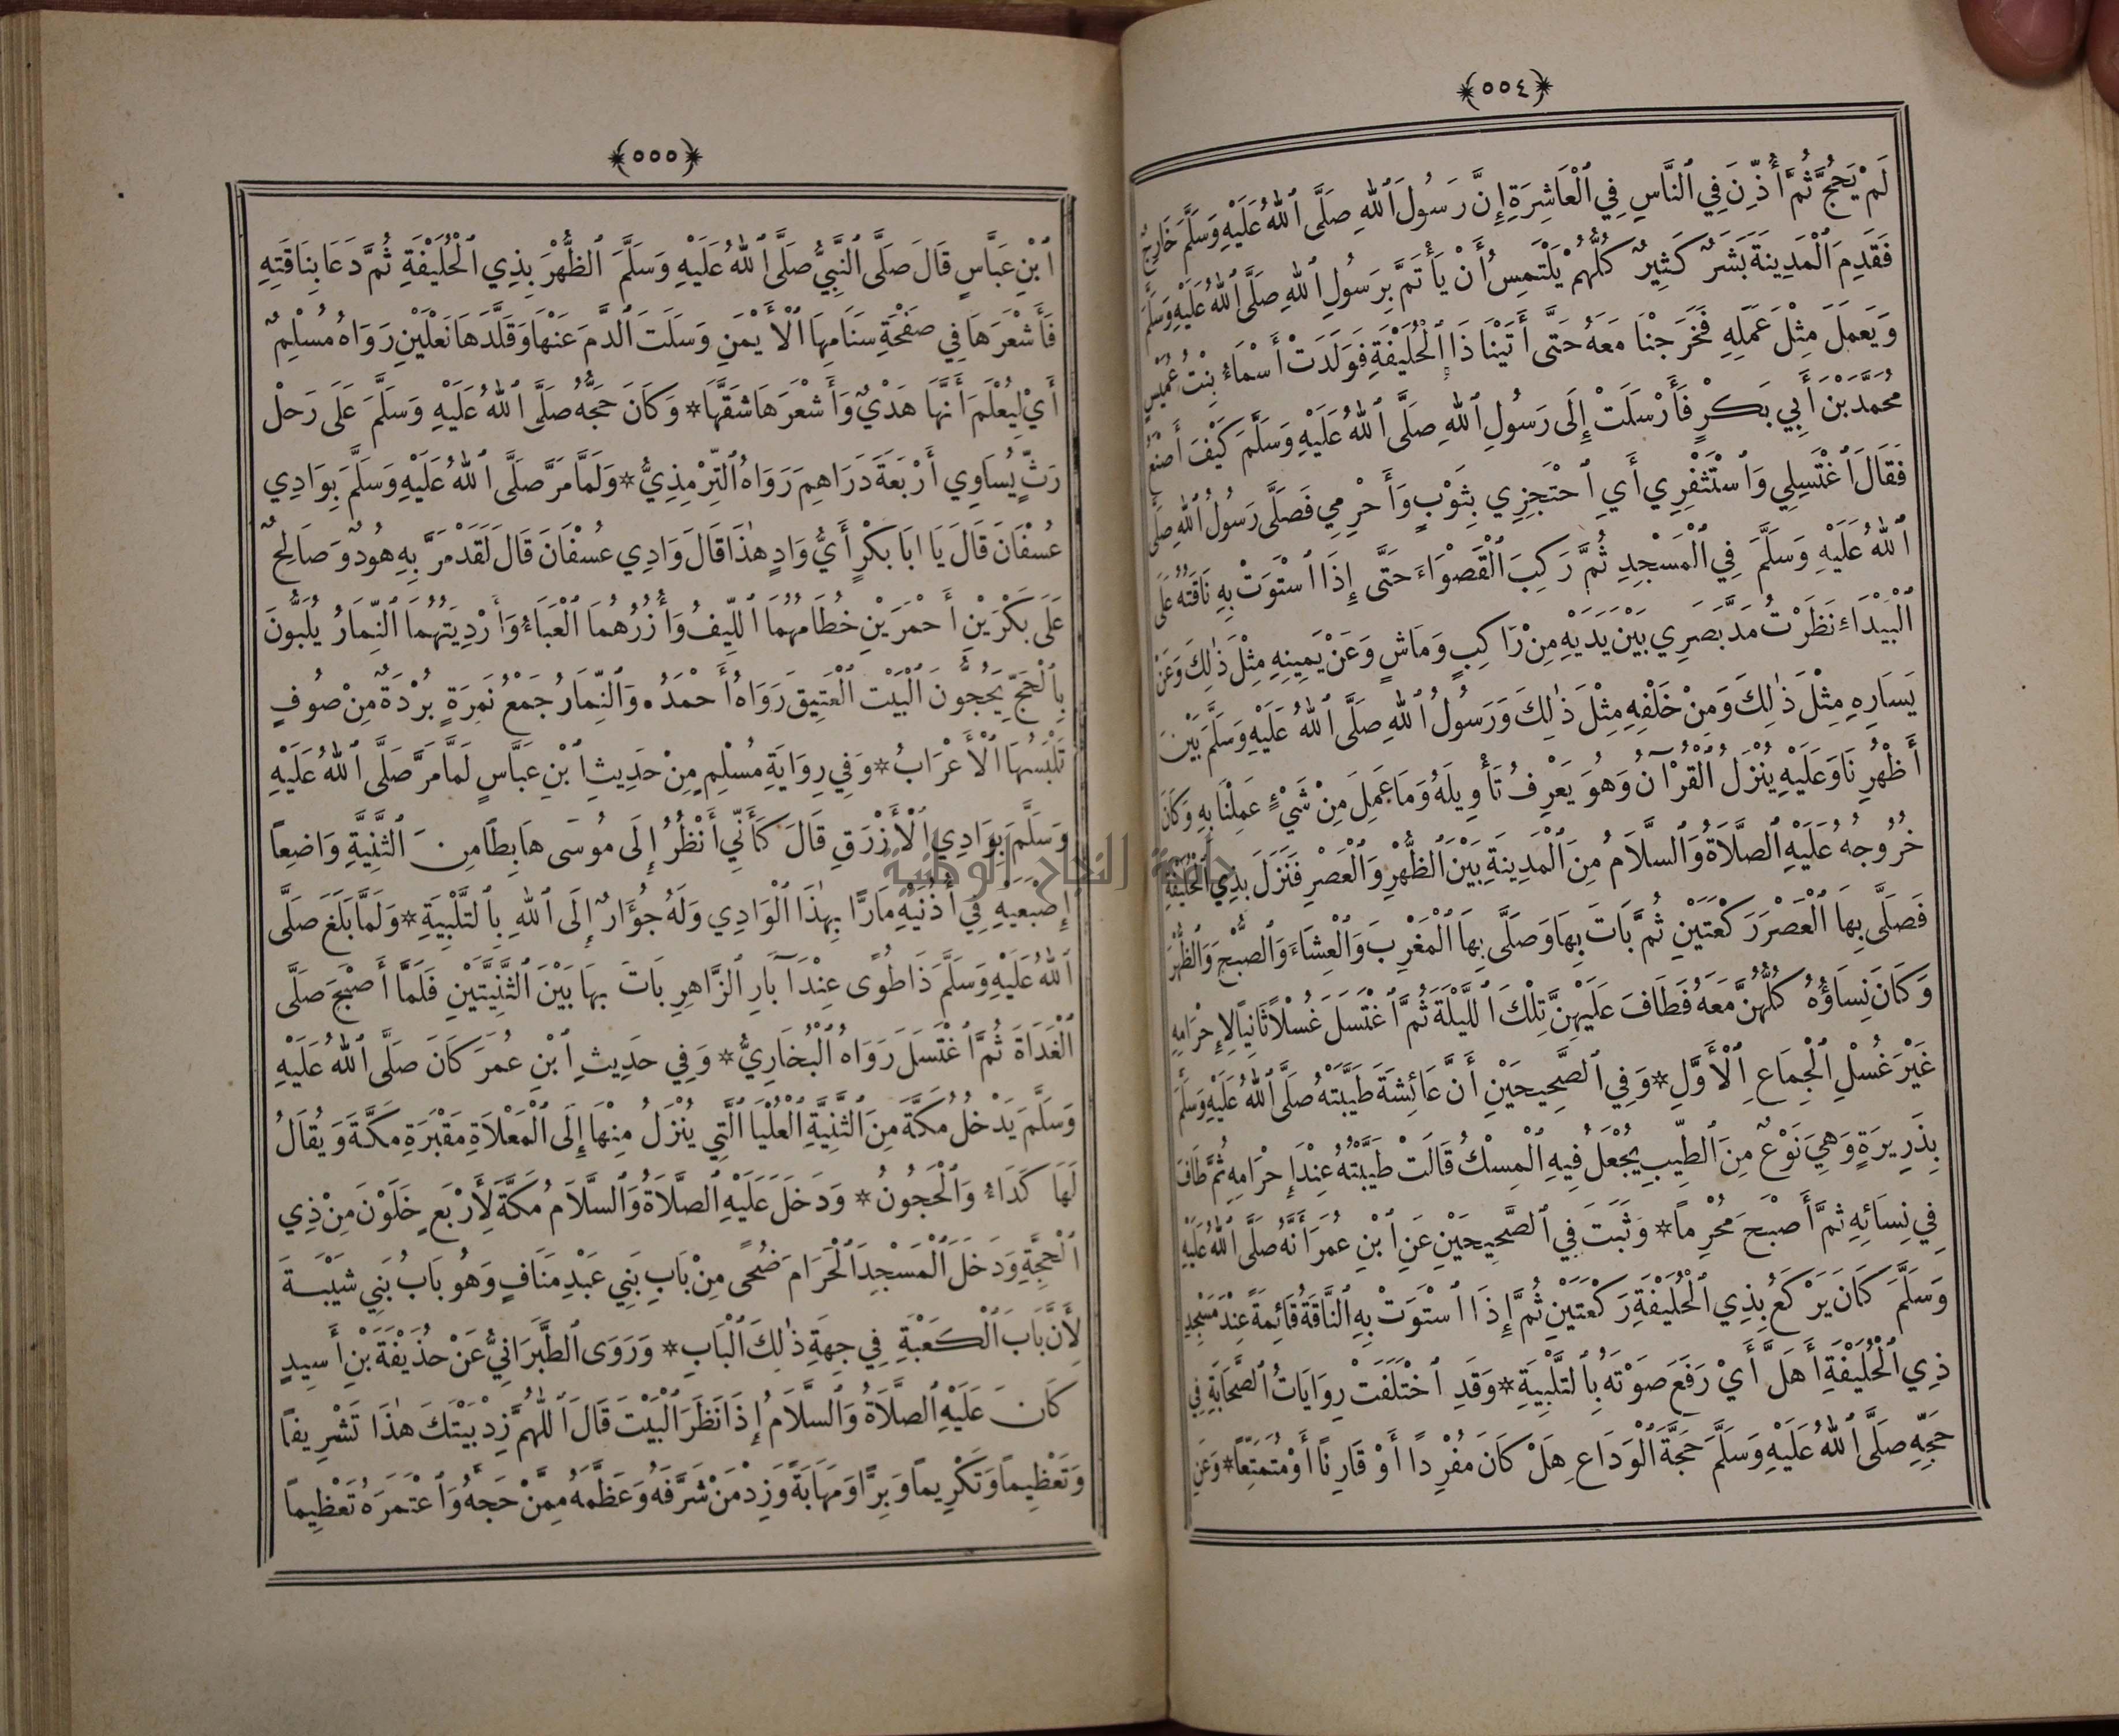 ﴿٥٥٤﴾
لَمْ يَحُجَّ ثُمَّ أُذِّنَ فِي ٱلنَّاسِ فِي ٱلْعَاشِرَةِ إِنَّ رَسُولَ ٱللهِ صَلَّى ٱللهُ عَلَيْهِ وَسَلَّمَ خَارِجٌ
فَقَدِمَ ٱلْمَدِينَةَ بَشَرٌ كَثِيرٌ كُلُّهُمْ يَلْتَمِسُ أَنْ يَأْتَمَّ بِرَسُولِ ٱللهِ صَلَّى ٱللهُ عَلَيْهِ وَسَلَّمَ
وَيَعْمَلَ مِثْلَ عَمَلِهِ فَخَرَجْنَا مَعَهُ حَتَّى أَتَيْنَا ذَا ٱلْحُلَيْفَةِ فَوَلَدَتْ أَسْمَاءُ بِنْتُ عُمَيْسٍ
مُحَمَّدَ بْنَ أَبِي بَكْرٍ فَأَرْسَلَتْ إِلَى رَسُولِ ٱللهِ صَلَّى ٱللهُ عَلَيْهِ وَسَلَّمَ كَيْفَ أَصْنَعُ
فَقَالَ ٱغْتَسِلِي وَٱسْتَثْفِرِي أَيِ ٱحْتَجِزِي بِثَوْبٍ وَأَحْرِمِي فَصَلَّى رَسُولُ ٱللهِ صَلَّى
ٱللهُ عَلَيْهِ وَسَلَّمَ فِي ٱلْمَسْجِدِ ثُمَّ رَكِبَ ٱلْقَصْوَاءَ حَتَّى إِذَا ٱسْتَوَتْ بِهِ نَاقَتُهُ عَلَى
ٱلْبَيْدَاءِ نَظَرْتُ مَدَّ بَصَرِي بَيْنَ يَدَيْهِ مِنْ رَاكِبٍ وَمَاشٍ وَعَنْ يَمِينِهِ مِثْلَ ذٰلِكَ وَعَنْ
يَسَارِهِ مِثْلَ ذٰلِكَ وَمِنْ خَلْفِهِ مِثْلَ ذٰلِكَ وَرَسُولُ ٱللهِ صَلَّى ٱللهُ عَلَيْهِ وَسَلَّمَ بَيْنَ
أَظْهُرِنَا وَعَلَيْهِ يُنْزَلُ ٱلْقُرْآنُ وَهُوَ يَعْرِفُ تَأْوِيلَهُ وَمَا عَمِلَ مِنْ شَيْءٍ عَمِلْنَا بِهِ وَكَانَ
خُرُوجُهُ عَلَيْهِ ٱلصَّلَاةُ وَٱلسَّلَامُ مِنَ ٱلْمَدِينَةِ بَيْنَ ٱلظُّهْرِ وَٱلْعَصْرِ فَنَزَلَ بِذِي ٱلْحُلَيْفَةِ
فَصَلَّى بِهَا ٱلْعَصْرَ رَكْعَتَيْنِ ثُمَّ بَاتَ بِهَا وَصَلَّى بِهَا ٱلْمَغْرِبَ وَٱلْعِشَاءَ وَٱلصُّبْحَ وَٱلظُّهْرَ
وَكَانَ نِسَاؤُهُ كُلُّهُنَّ مَعَهُ فَطَافَ عَلَيْهِنَّ تِلْكَ ٱللَّيْلَةَ ثُمَّ ٱغْتَسَلَ غُسْلًا ثَانِيًا لِإِحْرَامِهِ
غَيْرَ غُسْلِ ٱلْجِمَاعِ ٱلْأَوَّلِ * وَفِي ٱلصَّحِيحَيْنِ أَنَّ عَائِشَةَ طَيَّبَتْهُ صَلَّى ٱللهُ عَلَيْهِ وَسَلَّمَ
بِذَرِيرَةٍ وَهِيَ نَوْعٌ مِنَ ٱلطِّيبِ يُجْعَلُ فِيهِ ٱلْمِسْكُ قَالَتْ طَيَّبْتُهُ عِنْدَ إِحْرَامِهِ ثُمَّ طَافَ
فِي نِسَائِهِ ثُمَّ أَصْبَحَ مُحْرِمًا * وَثَبَتَ فِي ٱلصَّحِيحَيْنِ عَنِ ٱبْنِ عُمَرَ أَنَّهُ صَلَّى ٱللهُ عَلَيْهِ
وَسَلَّمَ كَانَ يَرْكَعُ بِذِي ٱلْحُلَيْفَةِ رَكْعَتَيْنِ ثُمَّ إِذَا ٱسْتَوَتْ بِهِ ٱلنَّاقَةُ قَائِمَةً عِنْدَ مَسْجِدِ
ذِي ٱلْحُلَيْفَةِ أَهَلَّ أَيْ رَفَعَ صَوْتَهُ بِٱلتَّلْبِيَةِ * وَقَدِ ٱخْتَلَفَتْ رِوَايَاتُ ٱلصَّحَابَةِ فِي
حَجِّهِ صَلَّى ٱللهُ عَلَيْهِ وَسَلَّمَ حَجَّةَ ٱلْوَدَاعِ هَلْ كَانَ مُفْرِدًا أَوْ قَارِنًا أَوْ مُتَمَتِّعًا * وَعَنِ
﴿٥٥٥﴾
ٱبْنِ عَبَّاسٍ قَالَ صَلَّى ٱلنَّبِيُّ صَلَّى ٱللهُ عَلَيْهِ وَسَلَّمَ ٱلظُّهْرَ بِذِي ٱلْحُلَيْفَةِ ثُمَّ دَعَا بِنَاقَتِهِ
فَأَشْعَرَهَا فِي صَفْحَةِ سَنَامِهَا ٱلْأَيْمَنِ وَسَلَتَ ٱلدَّمَ عَنْهَا وَقَلَّدَهَا نَعْلَيْنِ رَوَاهُ مُسْلِمٌ
أَيْ لِيُعْلَمَ أَنَّهَا هَدْيٌ وَأَشْعَرَهَا شَقَّهَا * وَكَانَ حَجُّهُ صَلَّى ٱللهُ عَلَيْهِ وَسَلَّمَ عَلَى رَحْلٍ
رَثٍّ يُسَاوِي أَرْبَعَةَ دَرَاهِمَ رَوَاهُ ٱلتِّرْمِذِيُّ * وَلَمَّا مَرَّ صَلَّى ٱللهُ عَلَيْهِ وَسَلَّمَ بِوَادِي
عُسْفَانَ قَالَ يَا ابَا بَكْرٍ أَيُّ وَادٍ هٰذَا قَالَ وَادِي عُسْفَانَ قَالَ لَقَدْ مَرَّ بِهِ هُودٌ وَصَالِحٌ
عَلَى بَكْرَيْنِ أَحْمَرَيْنِ خُطَامُهُمَا ٱللِّيفُ وَأُزُرُهُمَا ٱلْعَبَاءُ وَأَرْدِيَتُهُمَا ٱلنِّمَارُ يُلَبُّونَ
بِٱلْحَجِّ يَحُجُّونَ ٱلْبَيْتَ ٱلْعَتِيقَ رَوَاهُ أَحْمَدُ. وَٱلنِّمَارُ جَمْعُ نَمِرَةٍ بُرْدَةٌ مِنْ صُوفٍ
تَلْبَسُهَا ٱلْأَعْرَابُ * وَفِي رِوَايَةِ مُسْلِمٍ مِنْ حَدِيثِ ٱبْنِ عَبَّاسٍ لَمَّا مَرَّ صَلَّى ٱللهُ عَلَيْهِ
وَسَلَّمَ بِوَادِي ٱلْأَزْرَقِ قَالَ كَأَنِّي أَنْظُرُ إِلَى مُوسَى هَابِطًا مِنَ ٱلثَّنِيَّةِ وَاضِعًا
إِصْبَعَيْهِ فِي أُذُنَيْهِ مَارًّا بِهٰذَا ٱلْوَادِي وَلَهُ جُؤَارٌ إِلَى ٱللهِ بِٱلتَّلْبِيَةِ * وَلَمَّا بَلَغَ صَلَّى
ٱللهُ عَلَيْهِ وَسَلَّمَ ذَا طُوًى عِنْدَ آبَارِ ٱلزَّاهِرِ بَاتَ بِهَا بَيْنَ ٱلثَّنِيَّتَيْنِ فَلَمَّا أَصْبَحَ صَلَّى
ٱلْغَدَاةَ ثُمَّ ٱغْتَسَلَ رَوَاهُ ٱلْبُخَارِيُّ * وَفِي حَدِيثِ ٱبْنِ عُمَرَ كَانَ صَلَّى ٱللهُ عَلَيْهِ
وَسَلَّمَ يَدْخُلُ مَكَّةَ مِنَ ٱلثَّنِيَّةِ ٱلْعُلْيَا ٱلَّتِي يُنْزَلُ مِنْهَا إِلَى ٱلْمَعْلَاةِ مَقْبَرَةِ مَكَّةَ وَيُقَالُ
لَهَا كَدَاءُ وَٱلْحَجُونُ * وَدَخَلَ عَلَيْهِ ٱلصَّلَاةُ وَٱلسَّلَامُ مَكَّةَ لِأَرْبَعٍ خَلَوْنَ مِنْ ذِي
ٱلْحِجَّةِ وَدَخَلَ ٱلْمَسْجِدَ ٱلْحَرَامَ ضُحًى مِنْ بَابِ بَنِي عَبْدِ مَنَافٍ وَهُوَ بَابُ بَنِي شَيْبَةَ
لِأَنَّ بَابَ ٱلْكَعْبَةِ فِي جِهَةِ ذٰلِكَ ٱلْبَابِ * وَرَوَى ٱلطَّبَرَانِيُّ عَنْ حُذَيْفَةَ بْنِ أَسِيدٍ
كَانَ عَلَيْهِ ٱلصَّلَاةُ وَٱلسَّلَامُ إِذَا نَظَرَ ٱلْبَيْتَ قَالَ ٱللّٰهُمَّ زِدْ بَيْتَكَ هٰذَا تَشْرِيفًا
وَتَعْظِيمًا وَتَكْرِيمًا وَبِرًّا وَمَهَابَةً وَزِدْ مَنْ شَرَّفَهُ وَعَظَّمَهُ مِمَّنْ حَجَّهُ وَٱعْتَمَرَهُ تَعْظِيمًا
جامعة النجاح الوطنية